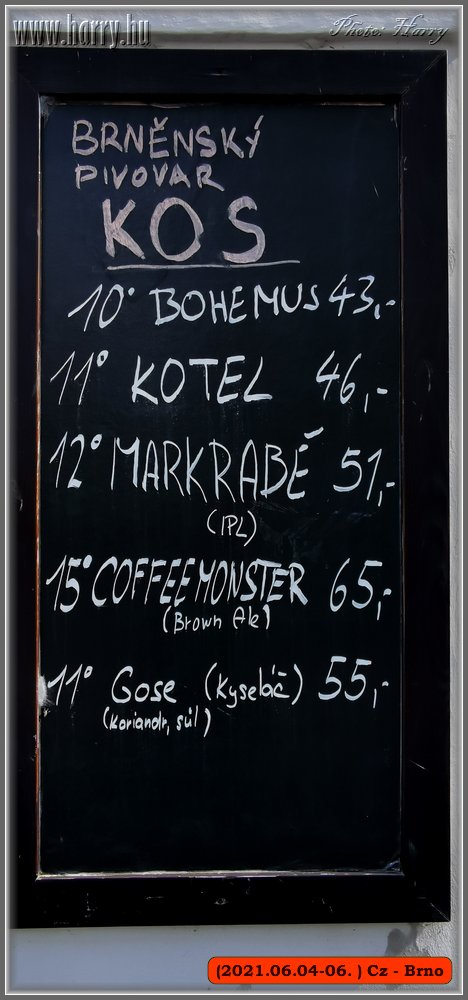 www.harry.hu
Photo: Harry
BRNĚNSKÝ
PIVOVAR
KOS
10° BOHEMUS 43,-
11° KOTEL 46,-
12° MARKRABÉ 51,-
(IPL)
15° COFFEEMONSTER 65,-
(Brown Ale)
11° Gose (Kyseláč) 55,-
(Koriandr, sůl)
(2021.06.04-06. ) Cz - Brno